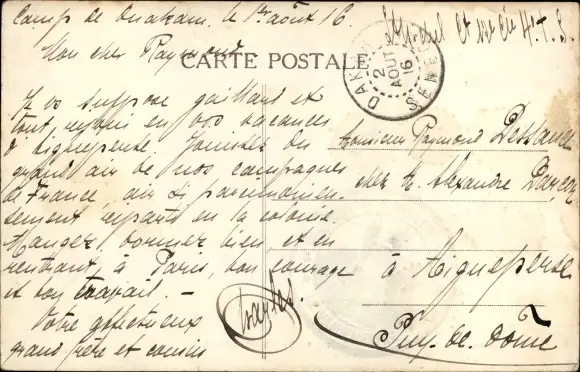 Camp de Ouakam, le 1er août 16.
Mon cher Raymond.
CARTE POSTALE
DAKAR
2
AOUT
16
SENEGAL
et
Je vs suppose gaillard et
tout réjoui en vos vacances
d'Aigueperse. Jouissez du
grand air de nos campagnes
de France, air si parcimonieu-
sement réparti en la colonie.
Mangez, dormez bien, et en
rentrant, à Paris, bon courage
et bon travail. -
Votre affectueux
grand frère et cousin
Charles
Monsieur Raymond
chez M. Alexandre
à Aigueperse
Puy-de-Dôme